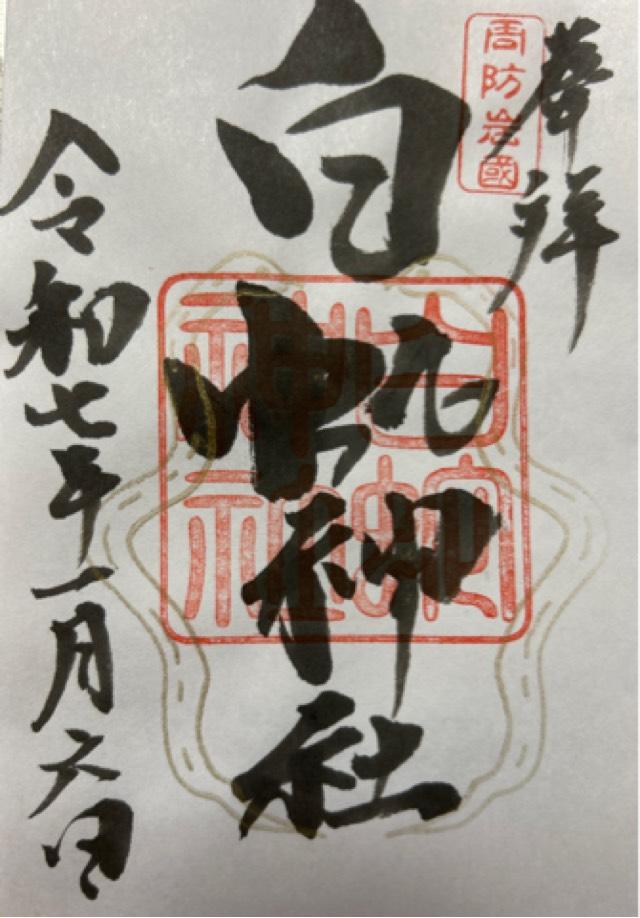 奉拝
周防岩國
白蛇神社
白蛇
神社
令和七年一月六日